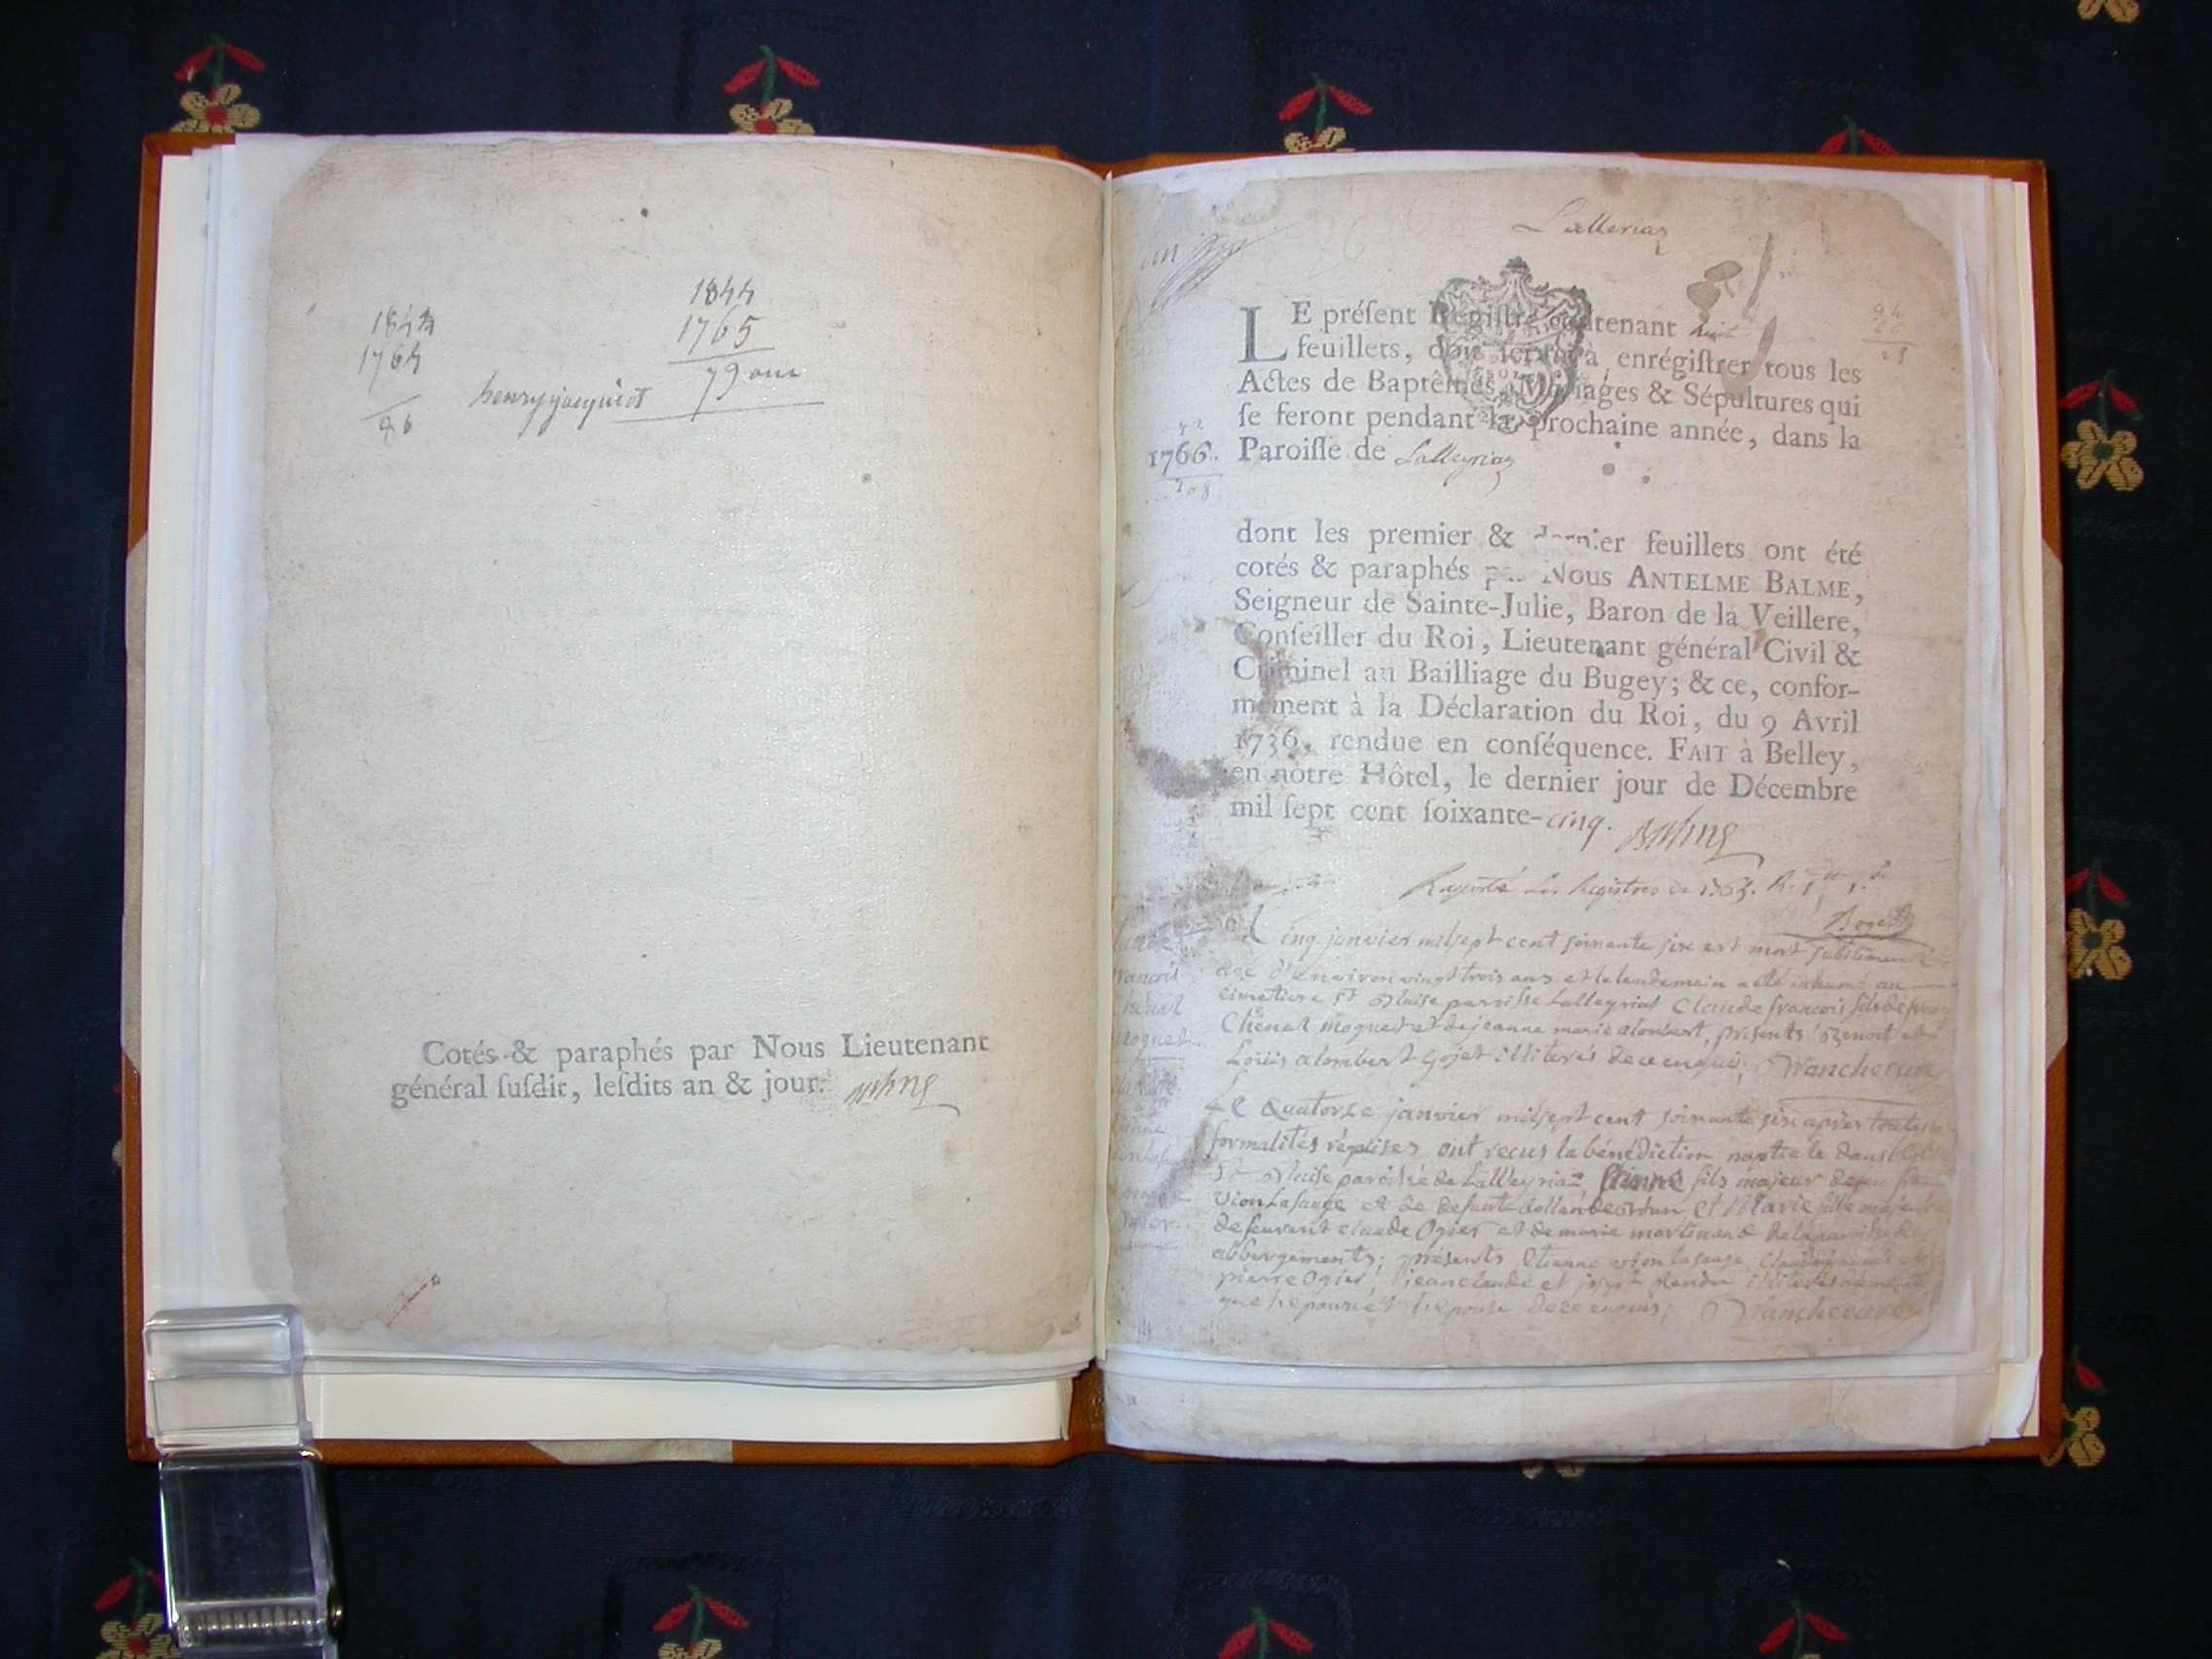 1844
1764
1844
1765
79 ans
henry jacquiot
Cotés & paraphés par Nous Lieutenant
général ſuſdit, leſdits an & jour.
Lalleriaz
LE préſent Regiſtre contenant huit
feuillets, doit ſervir à enrégiſtrer tous les
Actes de Baptêmes, Mariages & Sépultures qui
ſe feront pendant la prochaine année, dans la
1766. Paroiſſe de Lalleyriaz
dont les premier & dernier feuillets ont été
cotés & paraphés par Nous ANTELME BALME,
Seigneur de Sainte-Julie, Baron de la Veillere,
Conſeiller du Roi, Lieutenant général Civil &
Criminel au Bailliage du Bugey; & ce, confor-
mément à la Déclaration du Roi, du 9 Avril
1736, rendue en conſéquence. FAIT à Belley,
en nôtre Hôtel, le dernier jour de Décembre
mil ſept cent ſoixante-cinq.
les Registres de
cinq janvier mil sept cent soixante six est mort subitement
agé d'environ vingt trois ans et le lendemain a été inhumé au
cimetiere St Blaise paroisse Lalleyriat Claude françois fils de
Chenal moquet et de jeanne marie alombert, présents benoit et
Louis alombert gojet illiterés de ce enquis; Vanchereuse
Le Quatorze janvier mil sept cent soixante six après toutes
formalités réquises ont recus la bénédiction nuptiale dans
St Blaise paroisse de Lalleyriaz Etienne fils majeur de feu
Vion Lasauge et de defunte et Marie fille
de feu claude Ogier et de marie martinand de la paroisse
abbergements; présents Etienne vion lasauge
pierre Ogier, jean claude et illiterés
que l'epoux et l'epouse de ce enquis; Vanchereuse